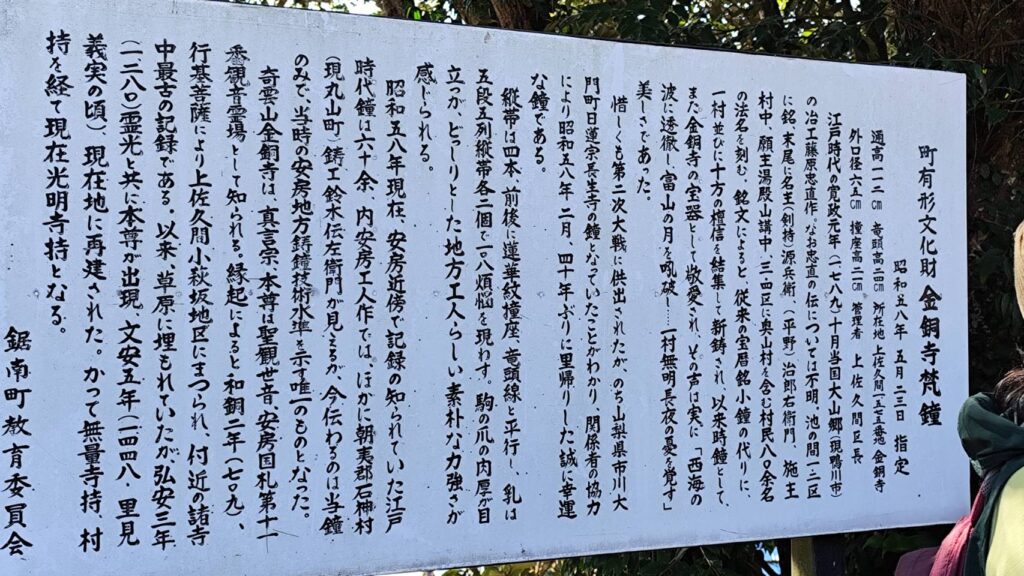 町有形文化財 金銅寺梵鐘
昭和五八年 五月二三日 指定
通高一一二cm 竜頭高二四cm 所在地 上佐久間一五五番地 金銅寺
外口径六五cm 撞座高二cm 管理者 上佐久間区長
江戸時代の寛政元年(一七八九)十月当国大山郷(現鴨川市)
の冶工藤原忠直作。なお忠直の伝については不明、池の間一・二区
に銘、末尾に名主(剣持)源兵衛、(平野)治郎右衛門、施主
村中、願主湯殿山講中、三・四区に奥山村を含む村民八〇余名
の法名を刻む。銘文によると、従来の宝暦銘小鐘の代りに、
一村並びに十方の檀信を結集して新鋳され、以来時鐘として、
また金銅寺の宝器として敬愛され、その声は実に「西海の
波に透徹し、富山の月を吼破し……一村無明長夜の憂を覚す」
美しさであった。
惜しくも第二次大戦に供出されたが、のち山梨県市川大
門町日蓮宗長生寺の鐘となっていたことがわかり、関係者の協力
により昭和五八年二月、四十年ぶりに里帰りした誠に幸運
な鐘である。
縦帯は四本、前後に蓮華紋撞座、竜頭線と平行し、乳は
五段五列縦帯各二個で一〇八煩悩を現わす。駒の爪の肉厚が目
立つが、どっしりとした地方工人らしい素朴な力強さが
感じられる。
昭和五八年現在、安房近傍で記録の知られていた江戸
時代鐘は六十余、内安房工人作では、ほかに朝夷郡石神村
(現丸山町)鋳工鈴木伝左衛門が見こるが、今伝わるのは当鐘
のみで、当時の安房地方鋳鐘技術水準を示す唯一のものとなった。
奇雲山金銅寺は、真言宗、本尊は聖観世音、安房国札第十一
番観音霊場として知られる。縁起によると和銅二年(七〇九)、
行基菩薩により上佐久間小萩坂地区にまつられ、付近の諸寺
中最古の記録である。以来、草原に埋もれていたが弘安三年
(一二八〇)霊光と共に本尊が出現、文安五年(一四四八・里見
義実の頃)、現在地に再建された。かつて無量寺持、村
持を経て現在光明寺持となる。
鋸南町教育委員会